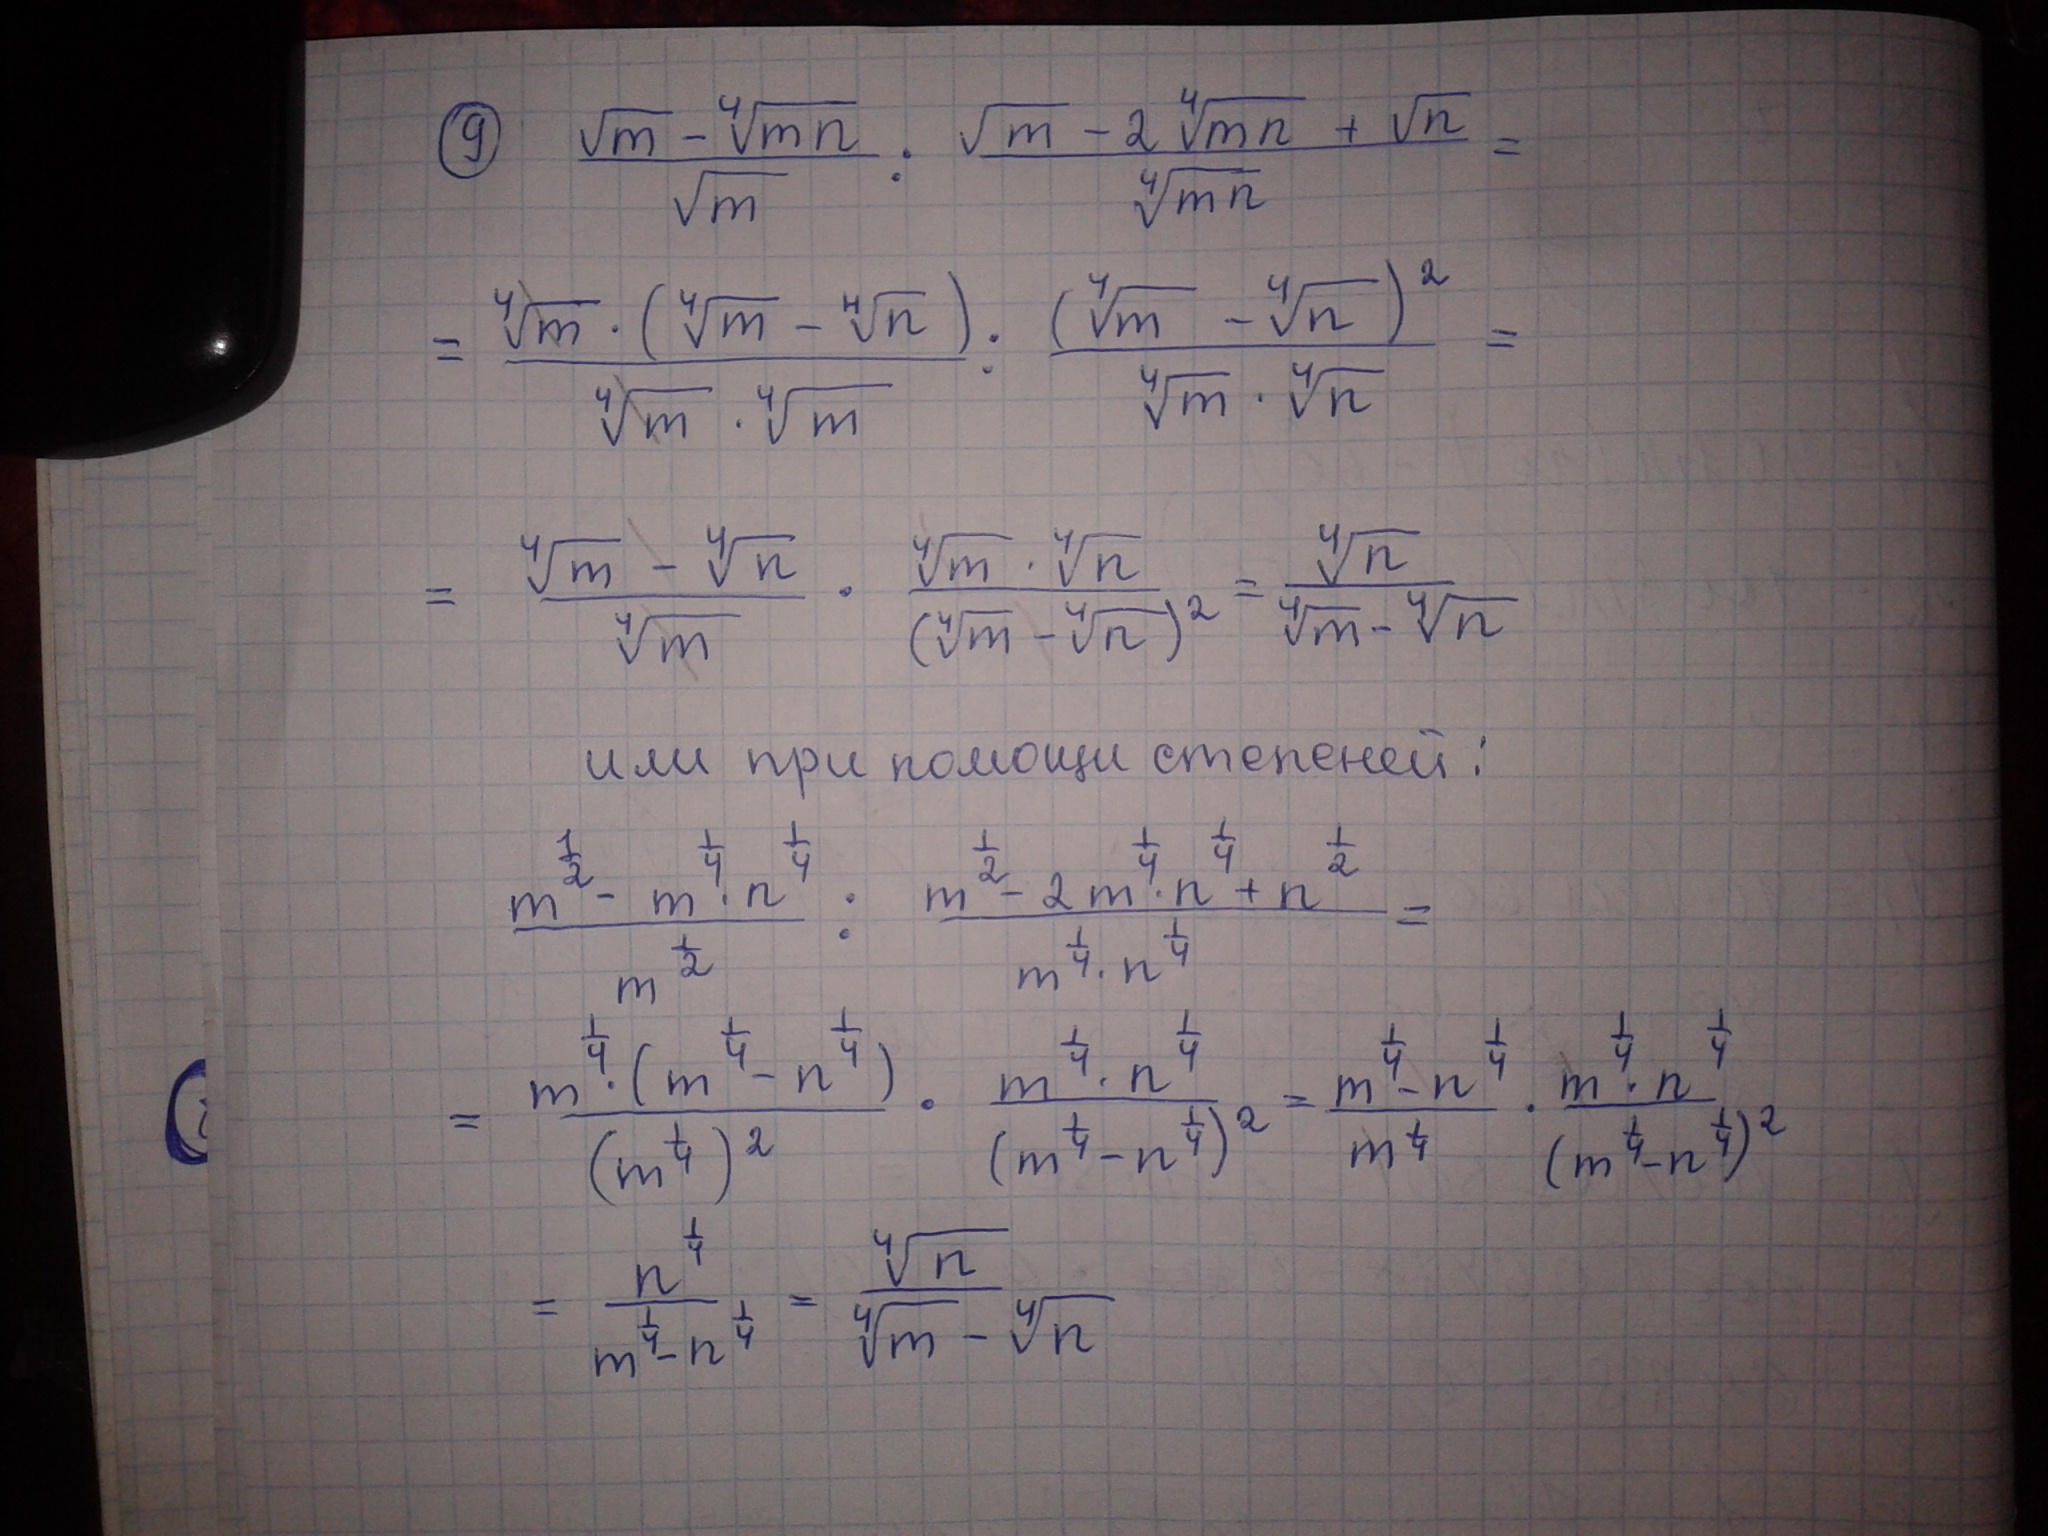 ⑨ (√m - ⁴√(mn))/√m : (√m - 2⁴√(mn) + √n)/⁴√(mn) =
= (⁴√m · (⁴√m - ⁴√n))/(⁴√m · ⁴√m) : (⁴√m - ⁴√n)²/(⁴√m · ⁴√n) =
= (⁴√m - ⁴√n)/⁴√m · (⁴√m · ⁴√n)/(⁴√m - ⁴√n)² = ⁴√n/(⁴√m - ⁴√n)
или при помощи степеней:
(m^(1/2) - m^(1/4) · n^(1/4))/m^(1/2) : (m^(1/2) - 2m^(1/4) · n^(1/4) + n^(1/2))/(m^(1/4) · n^(1/4)) =
= (m^(1/4) · (m^(1/4) - n^(1/4)))/(m^(1/4))² · (m^(1/4) · n^(1/4))/(m^(1/4) - n^(1/4))² = (m^(1/4) - n^(1/4))/m^(1/4) · (m^(1/4) · n^(1/4))/(m^(1/4) - n^(1/4))²
= n^(1/4)/(m^(1/4) - n^(1/4)) = ⁴√n/(⁴√m - ⁴√n)